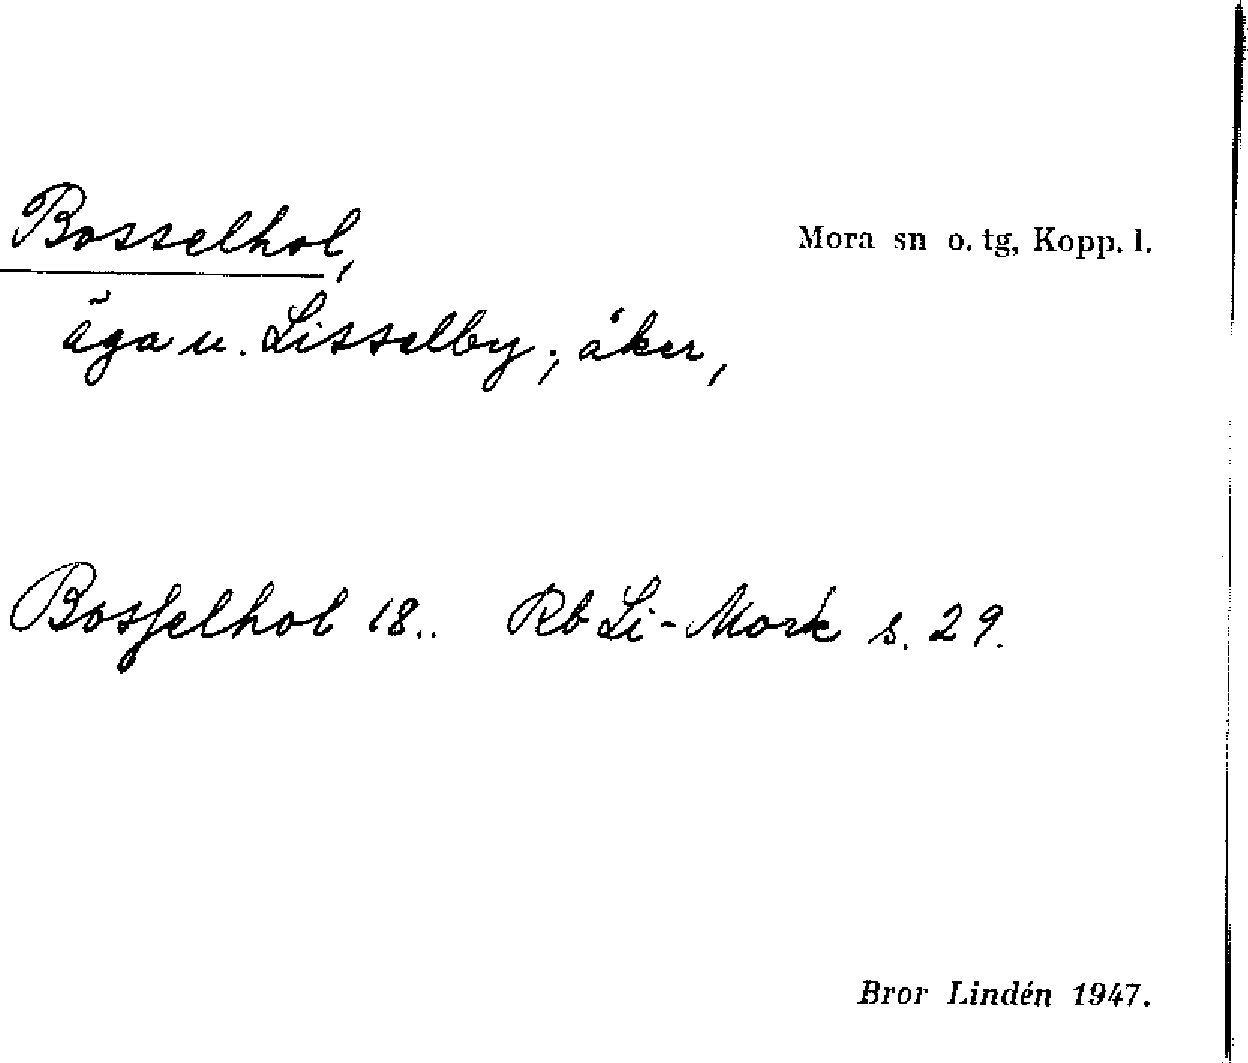 Bosselhol,
Mora sn o. tg, Kopp. l.
äga u. Lisselby; åker,
Bosſelhol 18.. Rb Li-Mork s. 29.
Bror Lindén 1947.